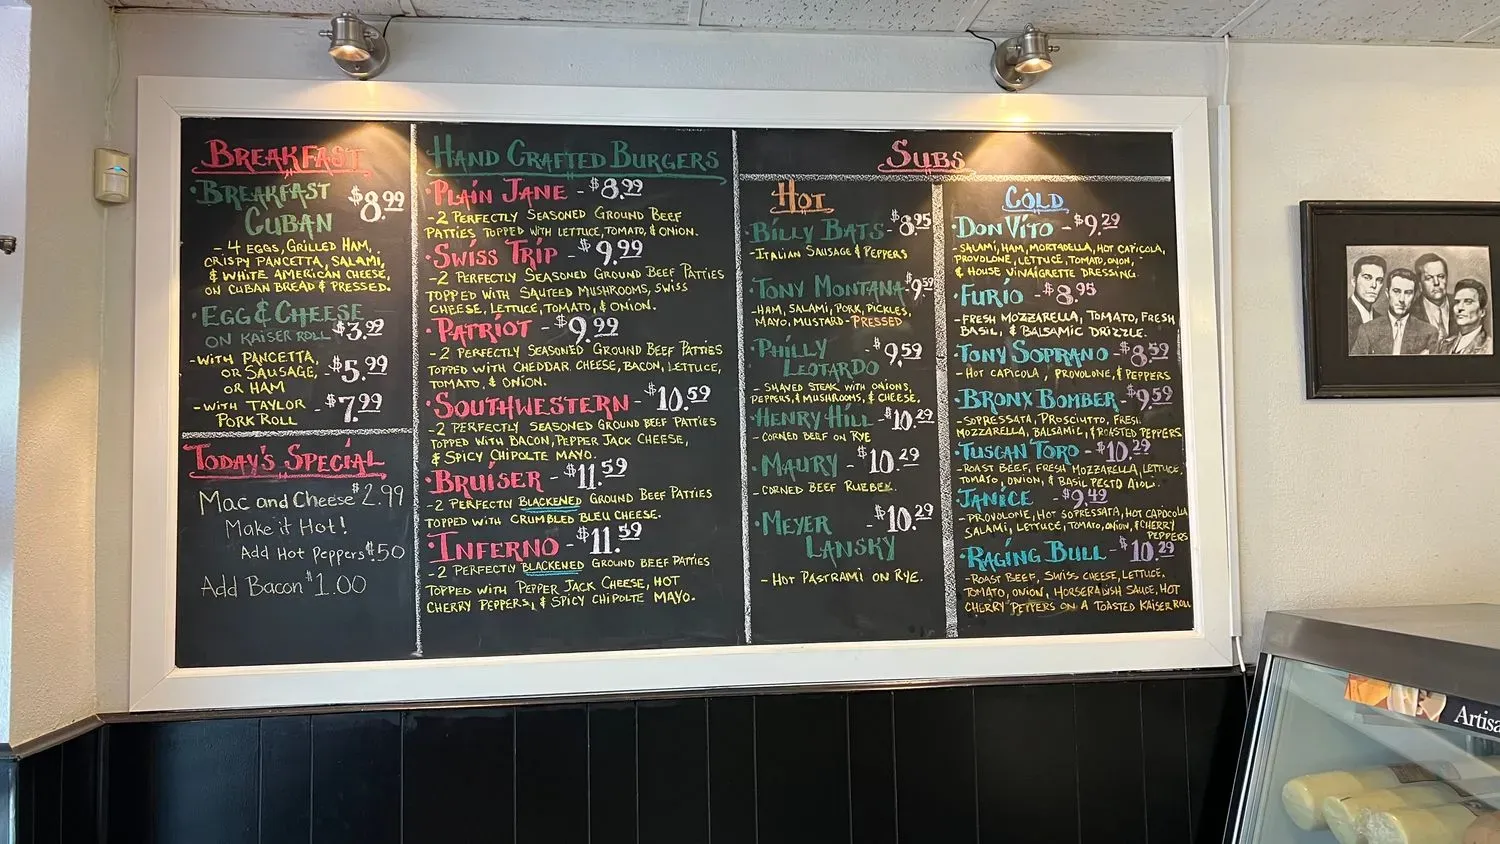 BREAKFAST
·BREAKFAST CUBAN $8.99
- 4 EGGS, GRILLED HAM,
CRISPY PANCETTA, SALAMI,
& WHITE AMERICAN CHEESE,
ON CUBAN BREAD & PRESSED.
·EGG & CHEESE
ON KAISER ROLL $3.99
-WITH PANCETTA,
OR SAUSAGE, -$5.99
OR HAM
-WITH TAYLOR
PORK ROLL -$7.99
TODAY'S SPECIAL
Mac and Cheese $2.99
Make it Hot!
Add Hot Peppers $.50
Add Bacon $1.00
HAND CRAFTED BURGERS
·PLAIN JANE -$8.99
-2 PERFECTLY SEASONED GROUND BEEF
PATTIES TOPPED WITH LETTUCE, TOMATO, & ONION.
·SWISS TRIP -$9.99
-2 PERFECTLY SEASONED GROUND BEEF PATTIES
TOPPED WITH SAUTEED MUSHROOMS, SWISS
CHEESE, LETTUCE, TOMATO, & ONION.
·PATRIOT -$9.99
-2 PERFECTLY SEASONED GROUND BEEF PATTIES
TOPPED WITH CHEDDAR CHEESE, BACON, LETTUCE,
TOMATO, & ONION.
·SOUTHWESTERN -$10.59
-2 PERFECTLY SEASONED GROUND BEEF PATTIES
TOPPED WITH BACON, PEPPER JACK CHEESE,
& SPICY CHIPOLTE MAYO.
·BRUISER -$11.59
-2 PERFECTLY BLACKENED GROUND BEEF PATTIES
TOPPED WITH CRUMBLED BLEU CHEESE.
·INFERNO -$11.59
-2 PERFECTLY BLACKENED GROUND BEEF PATTIES
TOPPED WITH PEPPER JACK CHEESE, HOT
CHERRY PEPPERS, & SPICY CHIPOLTE MAYO.
SUBS
HOT
·BILLY BATS -$8.95
-ITALIAN SAUSAGE & PEPPERS
·TONY MONTANA -$9.59
-HAM, SALAMI, PORK, PICKLES,
MAYO, MUSTARD - PRESSED
·PHILLY
LEOTARDO $9.59
- SHAVED STEAK WITH ONIONS,
PEPPERS, & MUSHROOMS, & CHEESE.
·HENRY HILL -$10.29
-CORNED BEEF ON RYE
·MAURY -$10.29
-CORNED BEEF RUEBEN.
·MEYER
LANSKY -$10.29
- HOT PASTRAMI ON RYE.
COLD
·DON VITO -$9.29
-SALAMI, HAM, MORTADELLA, HOT CAPICOLA,
PROVOLONE, LETTUCE, TOMATO, ONION,
& HOUSE VINAIGRETTE DRESSING.
·FURIO -$8.95
-FRESH MOZZARELLA, TOMATO, FRESH
BASIL, & BALSAMIC DRIZZLE.
·TONY SOPRANO -$8.59
-HOT CAPICOLA, PROVOLONE, & PEPPERS
·BRONX BOMBER -$9.59
-SOPRESSATA, PROSCIUTTO, FRESH
MOZZARELLA, BALSAMIC, & ROASTED PEPPERS
·TUSCAN TORO -$10.29
-ROAST BEEF, FRESH MOZZARELLA, LETTUCE,
TOMATO, ONION, & BASIL PESTO AIOLI.
·JANICE -$9.49
-PROVOLONE, HOT SOPRESSATA, HOT CAPOCOLA
SALAMI, LETTUCE, TOMATO, ONION, & CHERRY
PEPPERS
·RAGING BULL -$10.29
-ROAST BEEF, SWISS CHEESE, LETTUCE,
TOMATO, ONION, HORSERADISH SAUCE, HOT
CHERRY PEPPERS ON A TOASTED KAISER ROLL
Artisa